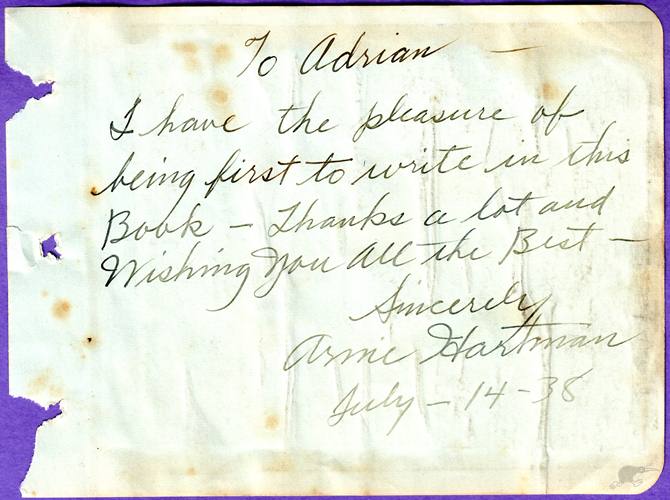 To Adrian —
I have the pleasure of
being first to write in this
Book — Thanks a lot and
Wishing You All the Best —
Sincerely
Arnie Hartman
July - 14 - 38